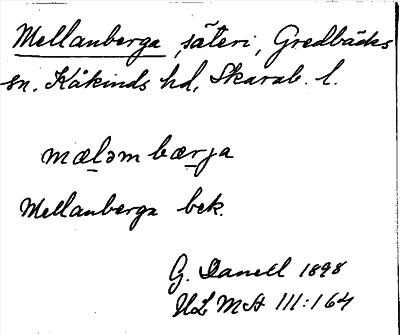 Mellanberga, säteri, Gredbäcks
sn. Kåkinds hd, Skarab. l.
mæ̱ləm bæ̱rja
Mellanberga bek.
G. Danell 1898
ULMA III:164